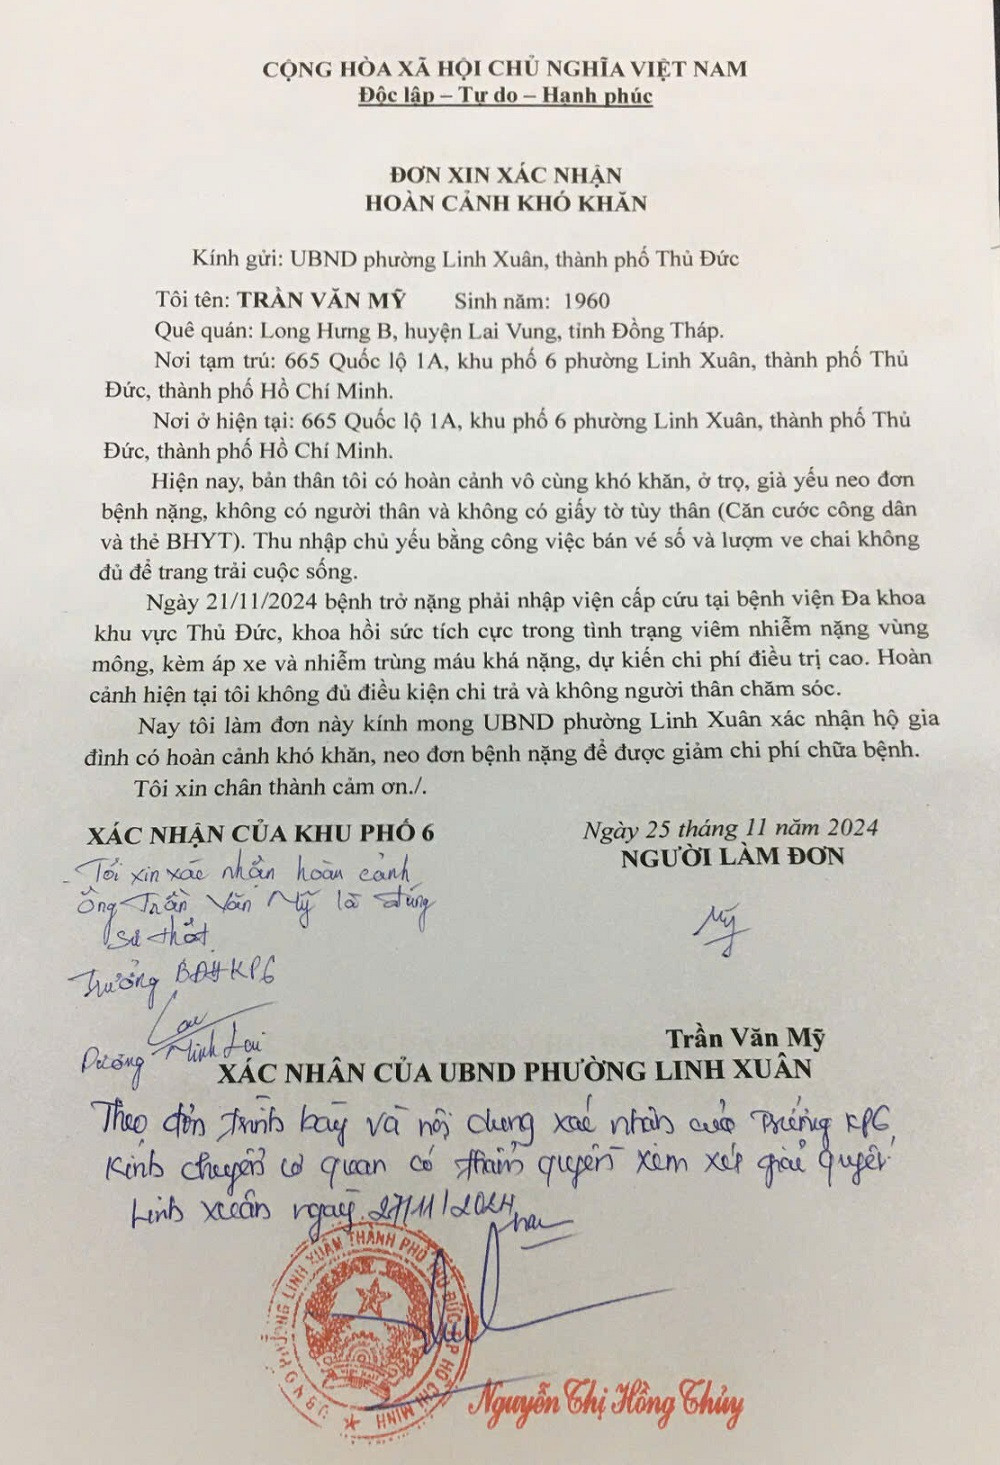 CỘNG HÒA XÃ HỘI CHỦ NGHĨA VIỆT NAM
Độc lập – Tự do – Hạnh phúc
ĐƠN XIN XÁC NHẬN
HOÀN CẢNH KHÓ KHĂN
Kính gửi: UBND phường Linh Xuân, thành phố Thủ Đức
Tôi tên: TRẦN VĂN MỸ Sinh năm: 1960
Quê quán: Long Hưng B, huyện Lai Vung, tỉnh Đồng Tháp.
Nơi tạm trú: 665 Quốc lộ 1A, khu phố 6 phường Linh Xuân, thành phố Thủ
Đức, thành phố Hồ Chí Minh.
Nơi ở hiện tại: 665 Quốc lộ 1A, khu phố 6 phường Linh Xuân, thành phố Thủ
Đức, thành phố Hồ Chí Minh.
Hiện nay, bản thân tôi có hoàn cảnh vô cùng khó khăn, ở trọ, già yếu neo đơn
bệnh nặng, không có người thân và không có giấy tờ tùy thân (Căn cước công dân
và thẻ BHYT). Thu nhập chủ yếu bằng công việc bán vé số và lượm ve chai không
đủ để trang trải cuộc sống.
Ngày 21/11/2024 bệnh trở nặng phải nhập viện cấp cứu tại bệnh viện Đa khoa
khu vực Thủ Đức, khoa hồi sức tích cực trong tình trạng viêm nhiễm nặng vùng
mông, kèm áp xe và nhiễm trùng máu khá nặng, dự kiến chi phí điều trị cao. Hoàn
cảnh hiện tại tôi không đủ điều kiện chi trả và không người thân chăm sóc.
Nay tôi làm đơn này kính mong UBND phường Linh Xuân xác nhận hộ gia
đình có hoàn cảnh khó khăn, neo đơn bệnh nặng để được giảm chi phí chữa bệnh.
Tôi xin chân thành cảm ơn./.
XÁC NHẬN CỦA KHU PHỐ 6
Ngày 25 tháng 11 năm 2024
NGƯỜI LÀM ĐƠN
- Tôi xin xác nhận hoàn cảnh
Ông Trần Văn Mỹ là đúng
sự thật
Trưởng BĐH KP6
Mỹ
Dương Minh
Trần Văn Mỹ
XÁC NHÂN CỦA UBND PHƯỜNG LINH XUÂN
Theo đơn trình bày và nội dung xác nhận của Trưởng KP6
Kính chuyển cơ quan có thẩm quyền xem xét giải quyết.
Linh Xuân ngày 27/11/2024
U.B.N.D PHƯỜNG LINH XUÂN THÀNH PHỐ THỦ ĐỨC TP HỒ CHÍ MINH
Nguyễn Thị Hồng Thủy